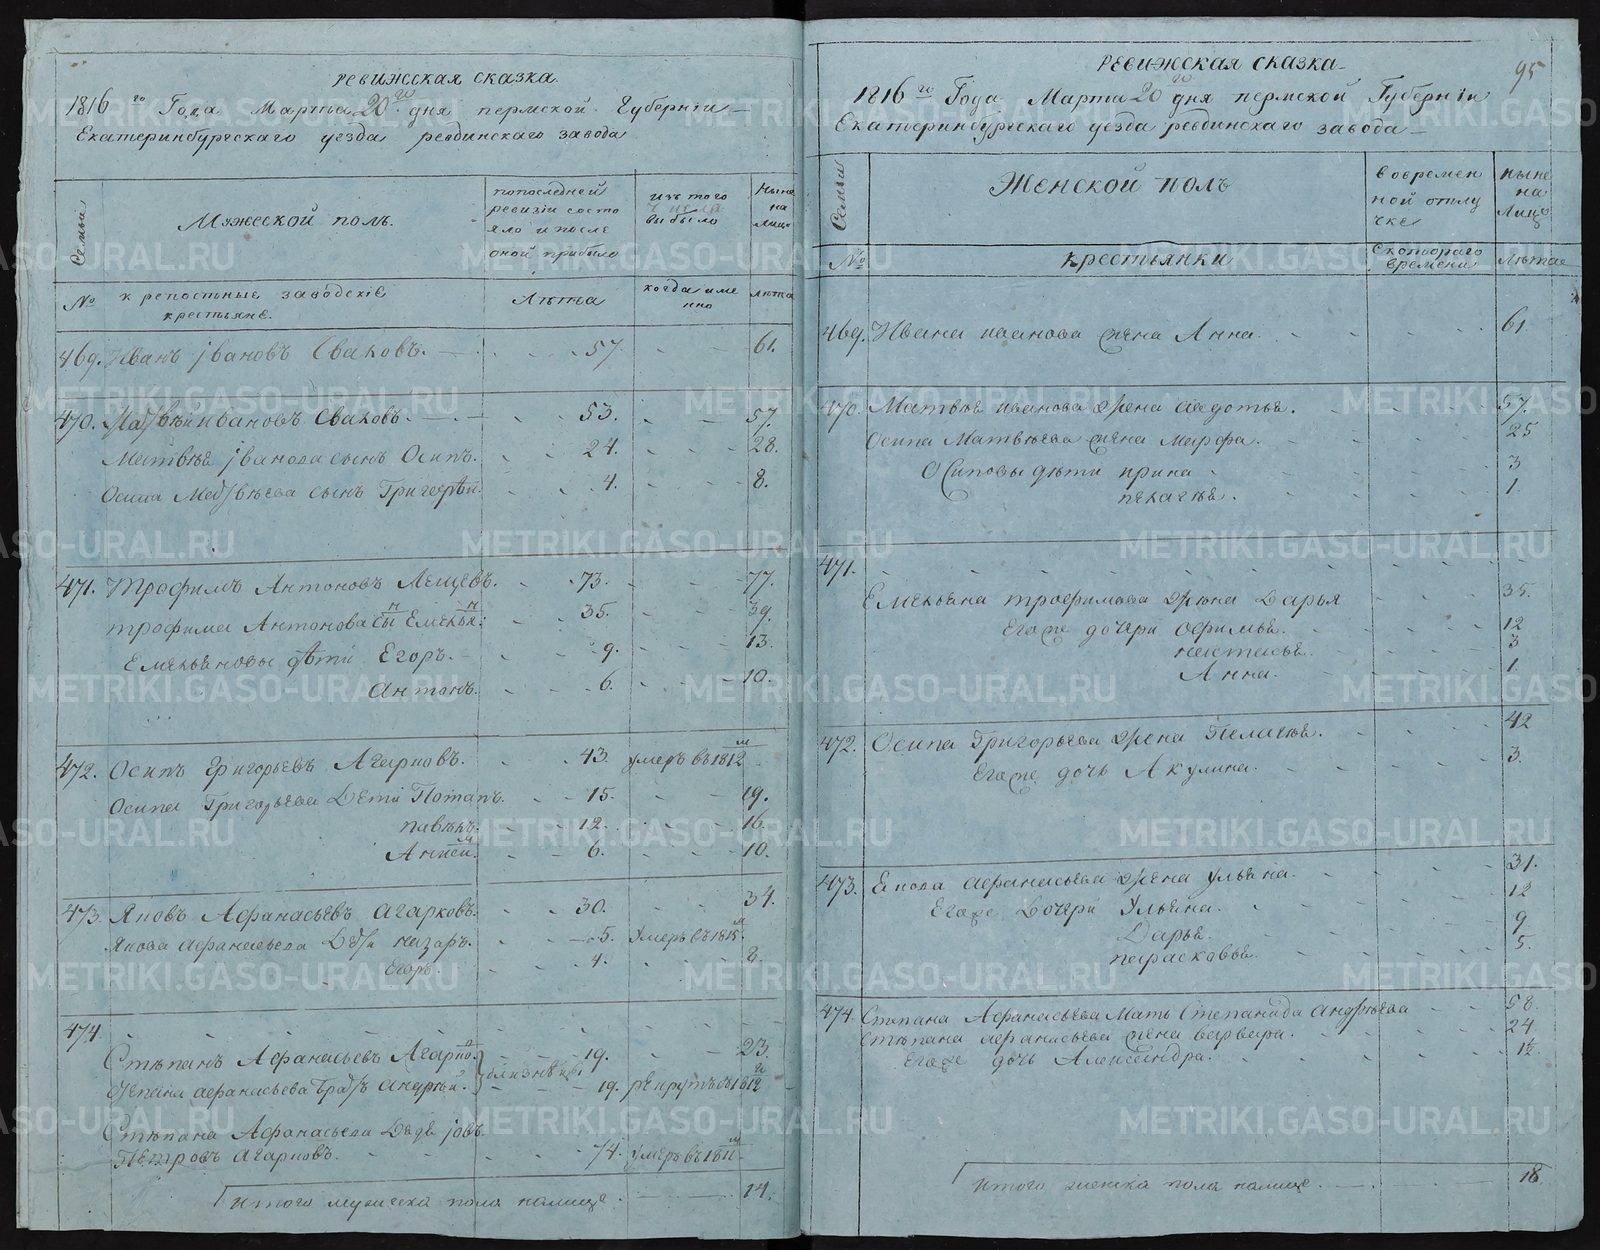 РЕВИЖСКАЯ СКАЗКА
1816го Года Марта 20го дня пермской Губернiи
Екатеринбургскаго уезда ревдинскаго завода
Семьи
Мужеской полъ.
попоследней ревизiи состояло и после оной прибыло
изъ того числа выбыло
Ныне на лицо
№
крепостные заводскiе крестьяне.
Лѣта
когда именно
лѣта
469. Иванъ Iвановъ Сваловъ. 57. 61.
470. Иванов Сваловъ. 53. 57.
Матвѣя Iванова сынъ Осипъ. 24. 28.
Осипа сынъ Григорей. 4. 8.
471. Трофимъ Антоновъ Лещевъ. 73. 77.
трофима Антонова сынъ Емельян: 35. 39.
Емельяновы дѣти Егоръ. 9. 13.
Антонъ. 6. 10.
472. Осипъ Григорьевъ Агарковъ. 43. умеръ въ 1812м
Осипа Григорьева Дети Потапъ. 15. 19.
павелъ. 12. 16.
6. 10.
473. Яковъ Афанасьевъ Агарковъ. 30. 34.
Якова Афанасьева Дети назаръ. 5. Умеръ въ 1815м
Егоръ. 4. 8.
474.
Степанъ Афанасьевъ Агарко. 19. 23.
близнецы
Степана Афанасьева братъ Андрей. 19. рекрутъ въ 1812го
Степана Афанасьева Дядя iовъ
Петровъ Агарковъ. 74. Умеръ въ 1811м
Итого мужеска пола налице. 14.
95
РЕВИЖСКАЯ СКАЗКА
1816го Года Марта 20го дня пермской Губернiи
Екатеринбургскаго уезда ревдинскаго завода
Семьи
Женской полъ
во временной отлучке
ныне на Лицо
№
крестьянки
Скотораго времени
Лѣта
469. Ивана иванова жена Анна. 61.
470. Матвѣя иванова жена Авдотья. 57.
Осипа Матвѣева жена марфа. 25
Осиповы дѣти ирина 3
пелагея. 1.
471.
Емельяна трофимова жена Дарья 35.
Егоже дочери офимья. 12
настасья. 3
Анна. 1.
472. Осипа Григорьева жена Пелагея. 42
Егоже дочь Акулина. 3.
473. Якова афанасьева жена ульяна. 31.
Егоже Дочери Ульяна. 12
Дарья. 9
парасковья. 5.
474. Степана Афанасьева Мать Степанида Андреева 58.
Степана афанасьева жена варвара. 24
Егоже дочь Александра. 1½.
Итого женска пола налице. 18.
METRIKI.GASO-URAL.RU